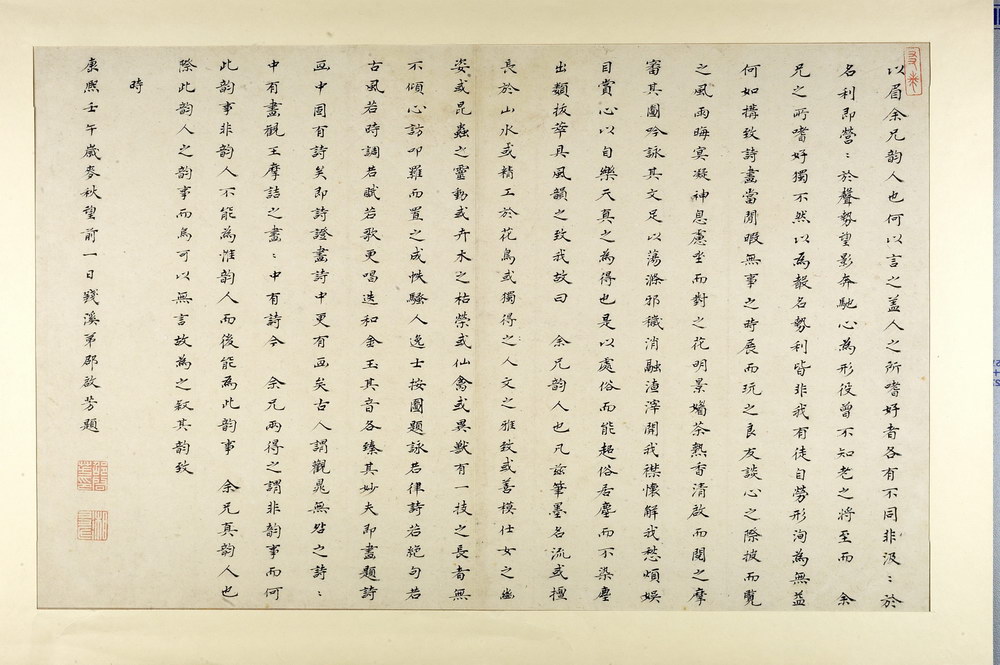 以眉余兄韵人也何以言之盖人之所嗜好者各有不同非汲〻於
名利即营〻於聲勢望影奔馳心為形役曾不知老之將至而 余
兄之所嗜好獨不然以為聲名勢利皆非我有徒自勞形洵為無益
何如搆致詩畫當閒暇無事之時展而玩之良友談心之際披而覽
之風雨晦冥凝神息慮坐而對之花明景媚茶熟香清啟而閱之摩
審其圖吟詠其文足以蕩滌邪穢消融渣滓開我襟懷解我愁煩娛
目賞心以自樂天真之為得也是以處俗而能超俗居塵而不染塵
出類拔萃具風韻之致我故曰 余兄韵人也凡茲筆墨名流或擅
長於山水或精工於花鳥或獨得之人文之雅致或善模仕女之幽
姿或昆蟲之靈動或卉木之枯榮或仙禽或異獸有一技之長者無
不傾心訪叩羅而置之成帙騷人逸士按圖題詠若律詩若絕句若
古風若時調若賦若歌更唱迭和金玉其音各臻其妙夫即畫題詩
画中固有詩矣即詩證畫詩中更有画矣古人謂觀晁無咎之詩〻
中有畫觀王摩詰之畫〻中有詩今 余兄兩得之謂非韵事而何
此韵事非韵人不能為惟韵人而後能為此韵事 余兄真韵人也
際此韵人之韵事而烏可以無言故為之叙其韵致
時
康熙壬午歲麥秋望前一日 溪弟邵啟芳題